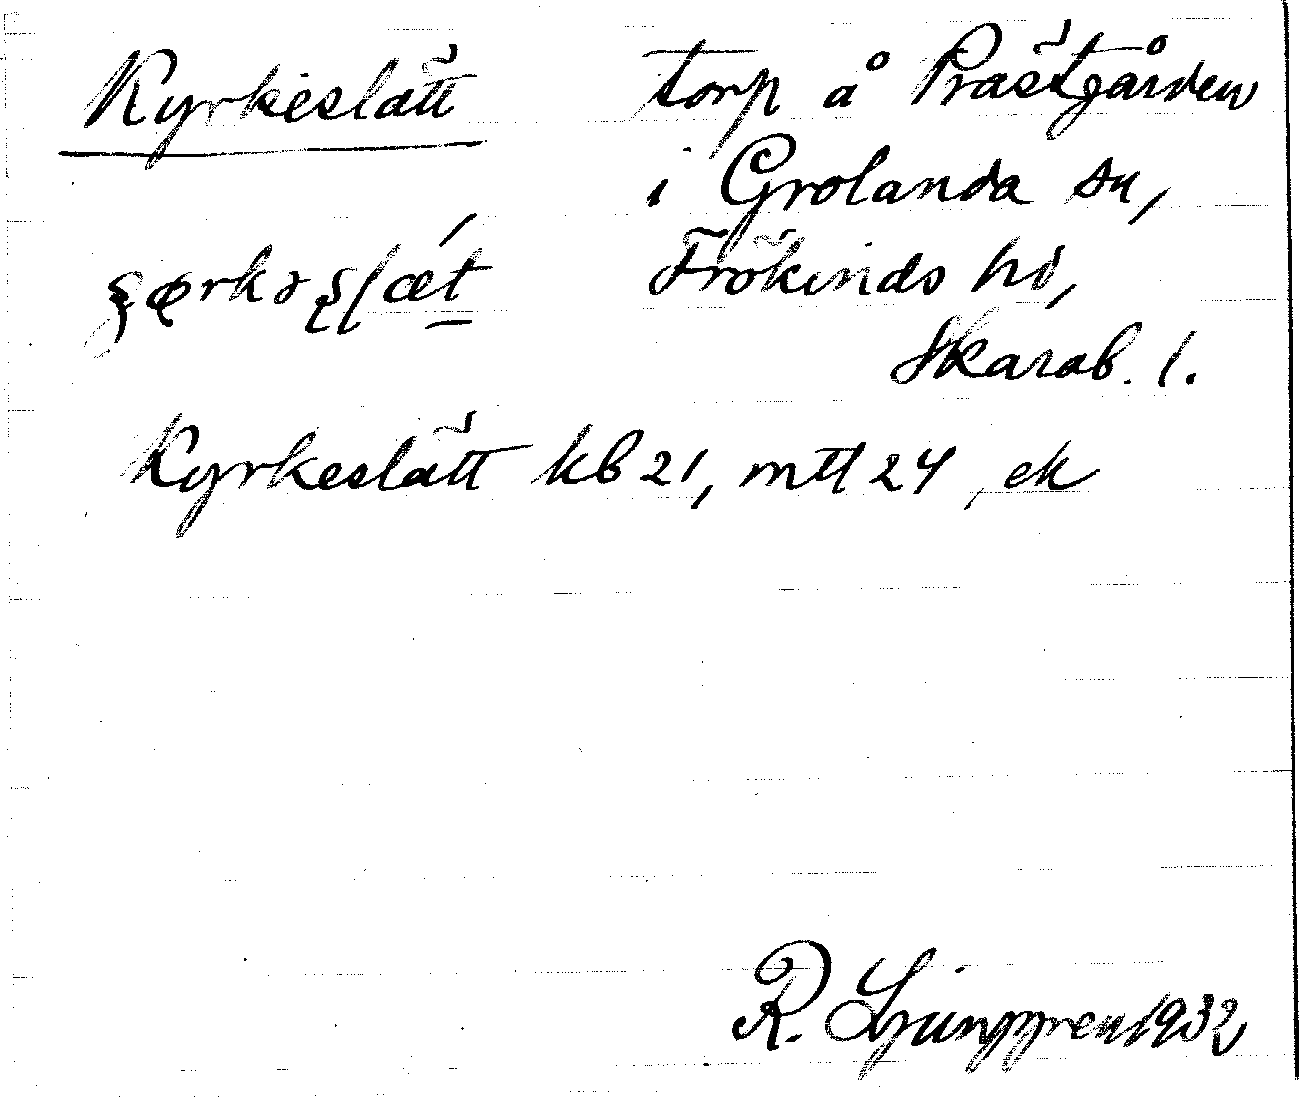 Kyrkeslätt torp å Prästgården
i Grolanda sn,
Frökinds hd,
Skarab. l.
Kyrkeslätt kb 21, mtl 24, ek
R. Ljunggren 1932